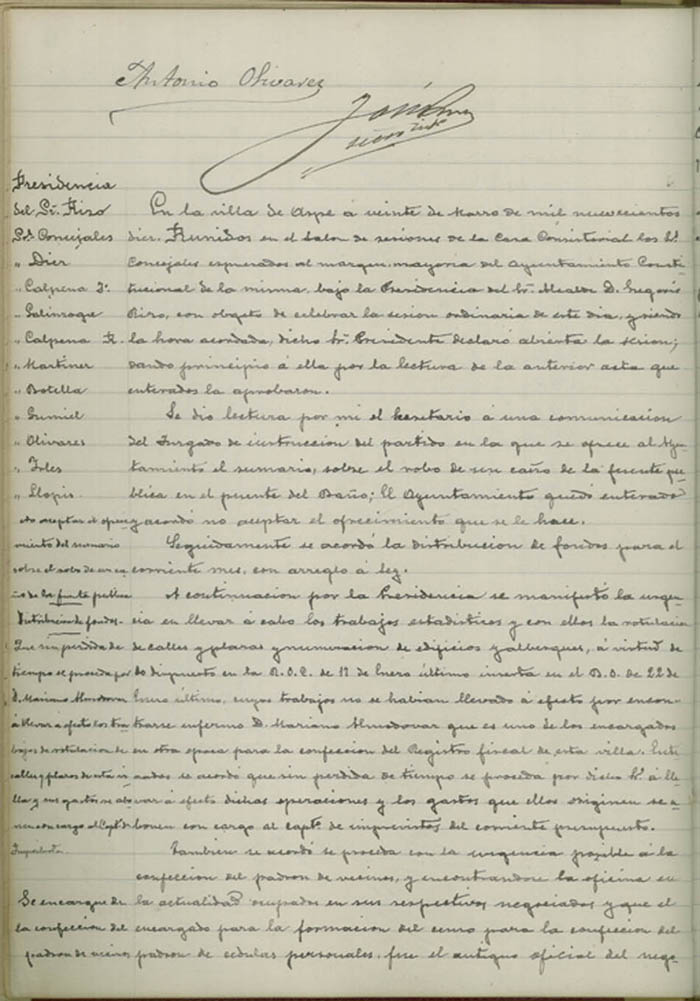 Antonio Olivares
Presidencia
del Sr. Rizo
Sres. Concejales
" Diez
" Calpena J.
" Galinsoga
" Calpena R.
" Martinez
" Botella
" Gumiel
" Olivares
" Irles
" Llopis
En la villa de Aspe á veinte de Marzo de mil nuevecientos
diez. Reunidos en el Salon de sesiones de la Casa Consistorial los Sres.
Concejales espresados al margen, mayoria del Ayuntamiento Consti-
tucional de la misma, bajo la Presidencia del Sr. Alcalde D. Gregorio
Rizo, con objeto de celebrar la sesion ordinaria de este dia, y siendo
la hora acordada, dicho Sr. Presidente declaró abierta la sesion;
dando principio á ella por la lectura de la anterior acta que
enterados la aprobaron.
No aceptar el ofreci-
miento del sumario
sobre el robo de un ca-
ño de la fuente publica
Se dio lectura por mi el Secretario á una comunicacion
del Juzgado de instruccion del partido en la que se ofrece al Ayun-
tamiento el sumario, sobre el robo de un caño de la fuente pu-
blica en el puente del Baño; El Ayuntamiento quedó enterado
y acordó no aceptar el ofrecimiento que se le hace.
Distribucion de fondos.
Seguidamente se acordó la distribucion de fondos para el
corriente mes, con arreglo á ley.
Que sin perdida de
tiempo se proceda por
D. Mariano Almodovar
á llevar a efecto los tra-
bajos de rotulacion de
calles y plazas de esta vi-
lla y sus gastos se abo-
nen con cargo al Capt. de
Imprevistos
A continuacion por la Presidencia se manifestó la urgen-
cia en llevar á cabo los trabajos estadisticos y con ellos la rotulacion
de calles y plazas y numeracion de edificios y albergues, á virtud de
lo dispuesto en la R.O.C. de 11 de Enero último inserta en el B.O. de 22 de
Enero último, cuyos trabajos no se habian llevado á efecto por encon-
trarse enfermo D. Mariano Almodovar que es uno de los encargados
en otra epoca para la confeccion del Registro fiscal de esta villa. Ente-
rados se acordó que sin perdida de tiempo se proceda por dicho Sr. á lle-
var á efecto dichas operaciones y los gastos que ellos originen se a-
bonen con cargo al capt. de imprevistos del corriente presupuesto.
Se encargue de
la confeccion del
padron de vecinos
Tambien se acordó se proceda con la urgencia posible á la
confeccion del padron de vecinos, y encontrandose la oficina en
la actualidad ocupados en sus respectivos negociados y que el
encargado para la formacion del censo para la confeccion del
padron de cedulas personales, fue el antiguo oficial del nego-